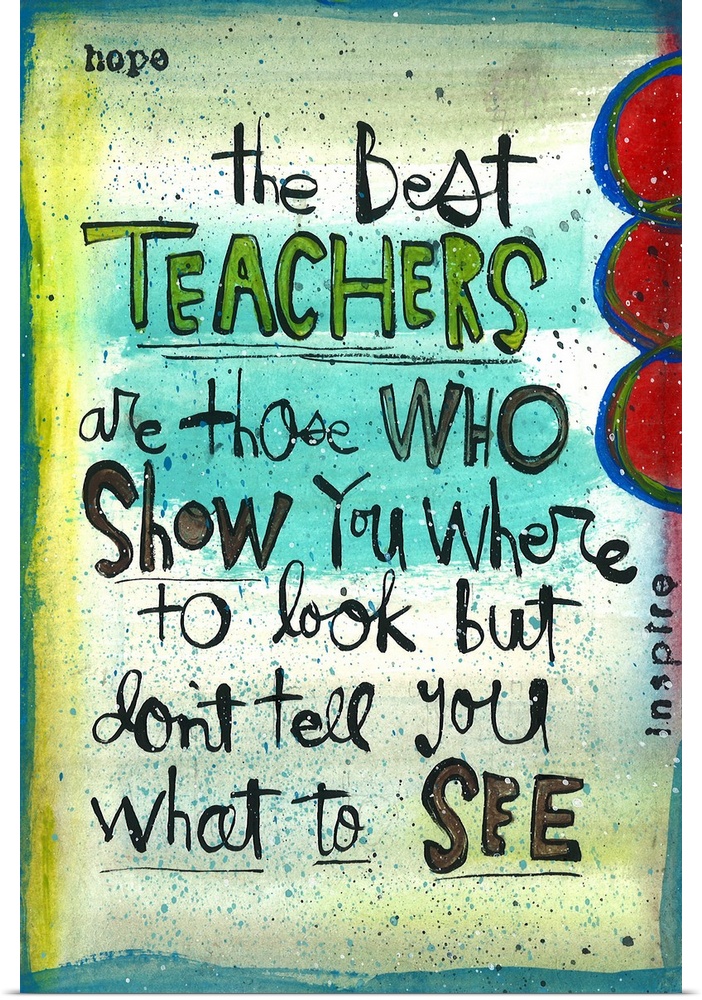 hope
the Best
TEACHERS
are those WHO
SHOW You Where
to look but
don't tell you
what to SEE
inspire